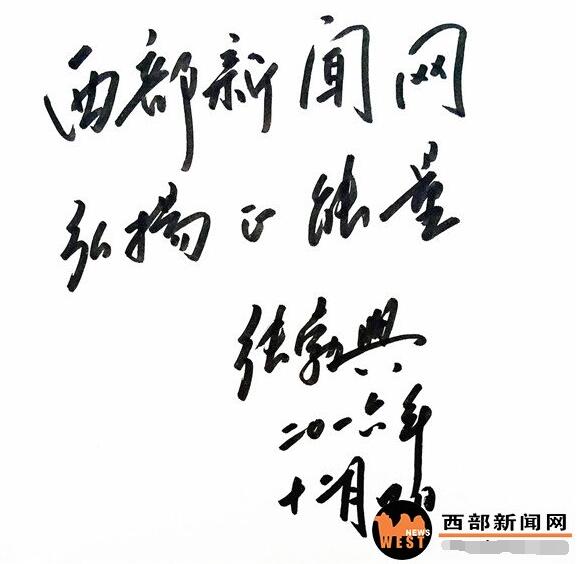 西部新闻网
弘扬正能量
张勃兴
二〇一六年
十二月
NEWS
WEST
西部新闻网